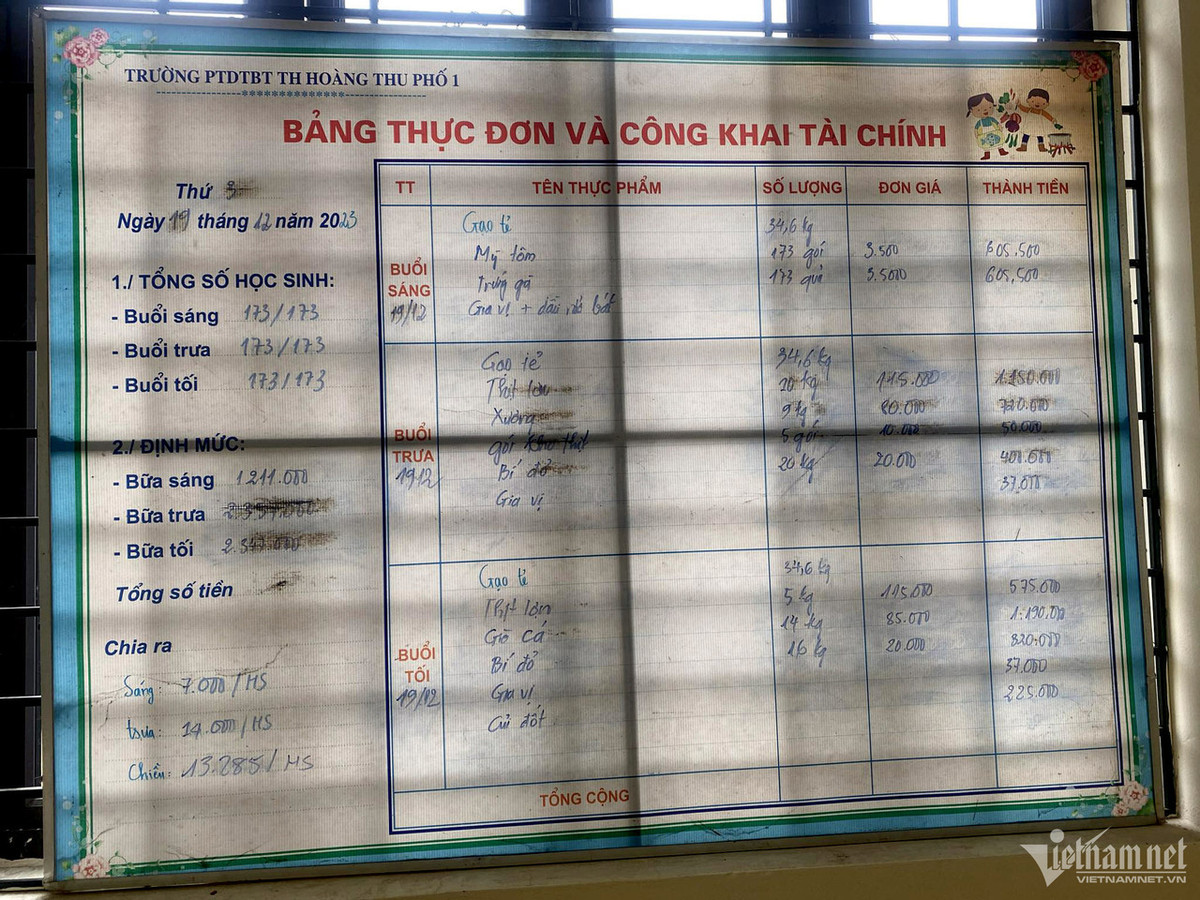 TRƯỜNG PTDTBT TH HOÀNG THU PHỐ 1
BẢNG THỰC ĐƠN VÀ CÔNG KHAI TÀI CHÍNH
Thứ 3
Ngày 19 tháng 12 năm 2023
1./ TỔNG SỐ HỌC SINH:
- Buổi sáng 173/173
- Buổi trưa 173/173
- Buổi tối 173/173
2./ ĐỊNH MỨC:
- Bữa sáng 1211.000
- Bữa trưa
- Bữa tối
Tổng số tiền
Chia ra
Sáng: 7.000/HS
trưa: 14.000/HS
Chiều: 13.285/HS
TT TÊN THỰC PHẨM SỐ LƯỢNG ĐƠN GIÁ THÀNH TIỀN
BUỔI SÁNG 19/12
Gạo tẻ 34,6 kg
Mỳ tôm 173 gói 3.500 605,500
Trứng gà 173 quả 3.500 605,500
Gia vị + dầu rửa bát
BUỔI TRƯA 19/12
Gạo tẻ 34,6 kg
Thịt lợn 20 kg 115.000
Xương 9 kg 80.000 720.000
gói kho thịt 5 gói 10.000 50.000
Bí đỏ 20 kg 20.000 400.000
Gia vị 37.000
BUỔI TỐI 19/12
Gạo tẻ 34,6 kg
Thịt lợn 5 kg 115.000 575.000
Giò cá 14 kg 85.000 1.190.000
Bí đỏ 16 kg 20.000 320.000
Gia vị 37.000
Củi đốt 225.000
TỔNG CỘNG
Vietnamnet
VIETNAMNET.VN